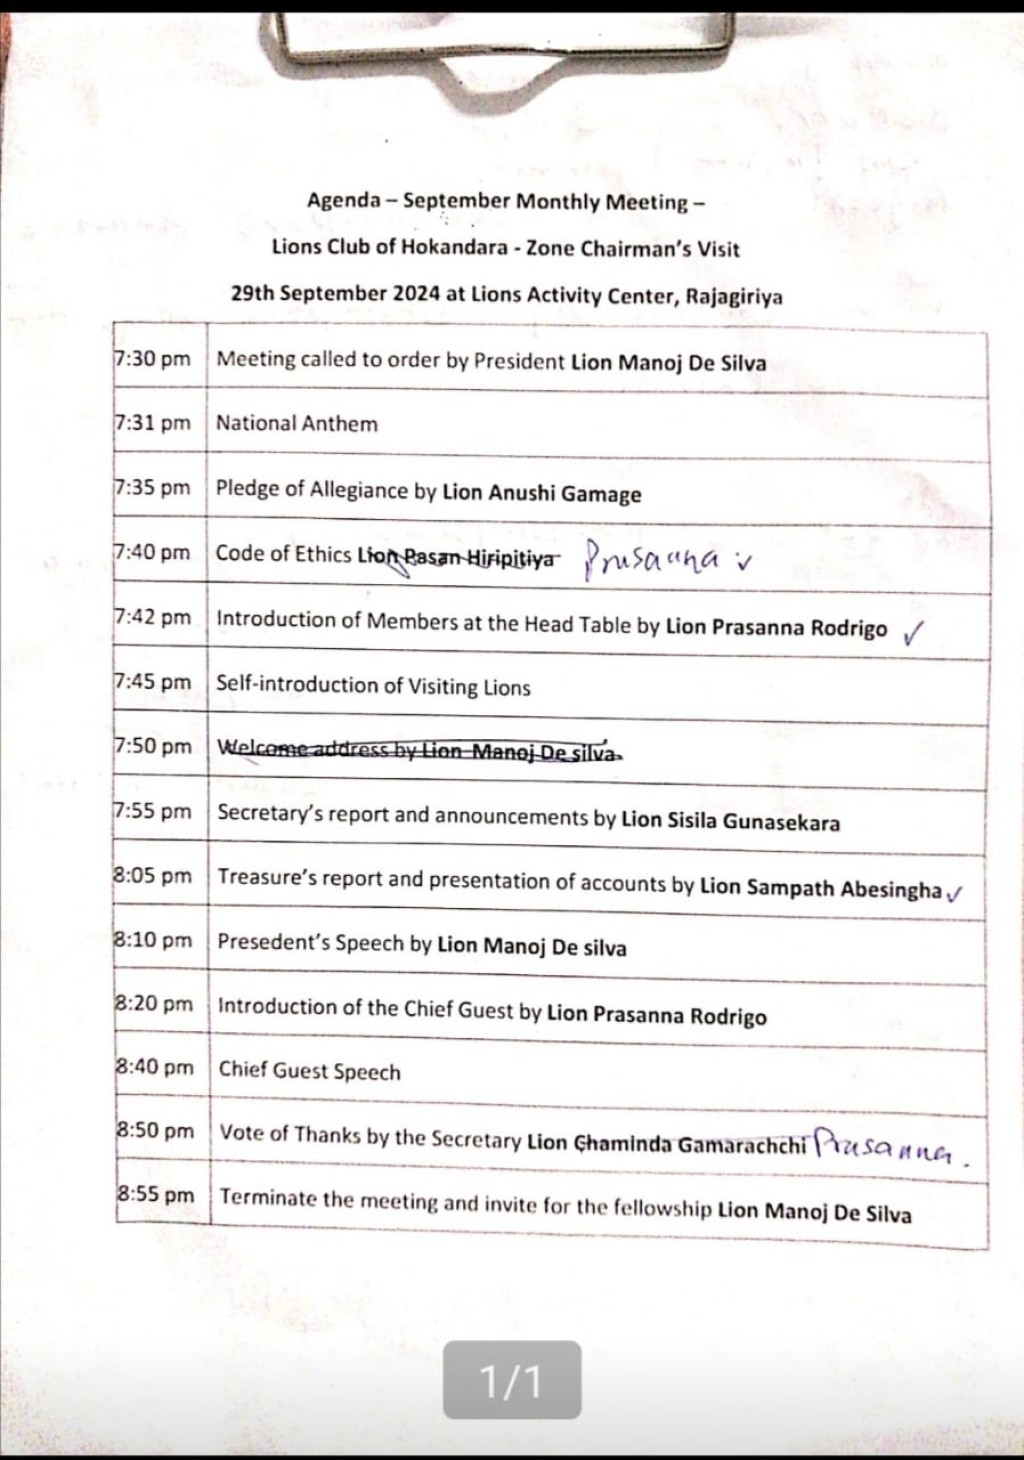 Agenda – September Monthly Meeting –
Lions Club of Hokandara - Zone Chairman's Visit
29th September 2024 at Lions Activity Center, Rajagiriya
7:30 pm Meeting called to order by President Lion Manoj De Silva
7:31 pm National Anthem
7:35 pm Pledge of Allegiance by Lion Anushi Gamage
7:40 pm Code of Ethics Lion Pasan Hiripitiya Prasanna ✓
7:42 pm Introduction of Members at the Head Table by Lion Prasanna Rodrigo ✓
7:45 pm Self-introduction of Visiting Lions
7:50 pm Welcome address by Lion Manoj De silva.
7:55 pm Secretary's report and announcements by Lion Sisila Gunasekara
8:05 pm Treasure's report and presentation of accounts by Lion Sampath Abesingha ✓
8:10 pm Presedent's Speech by Lion Manoj De silva
8:20 pm Introduction of the Chief Guest by Lion Prasanna Rodrigo
8:40 pm Chief Guest Speech
8:50 pm Vote of Thanks by the Secretary Lion Chaminda Gamarachchi Prasanna.
8:55 pm Terminate the meeting and invite for the fellowship Lion Manoj De Silva
1/1